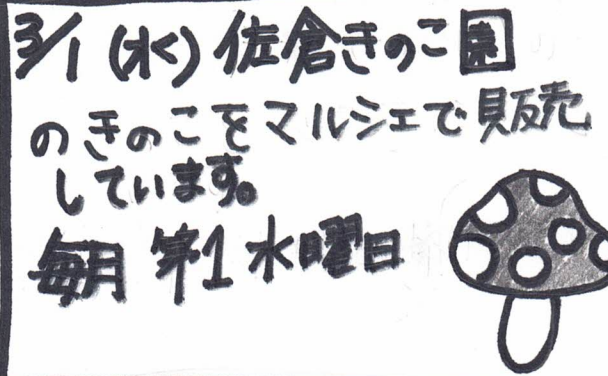 3/1 (水) 佐倉きのこ園
のきのこをマルシェで販売
しています。
毎月 第1 水曜日